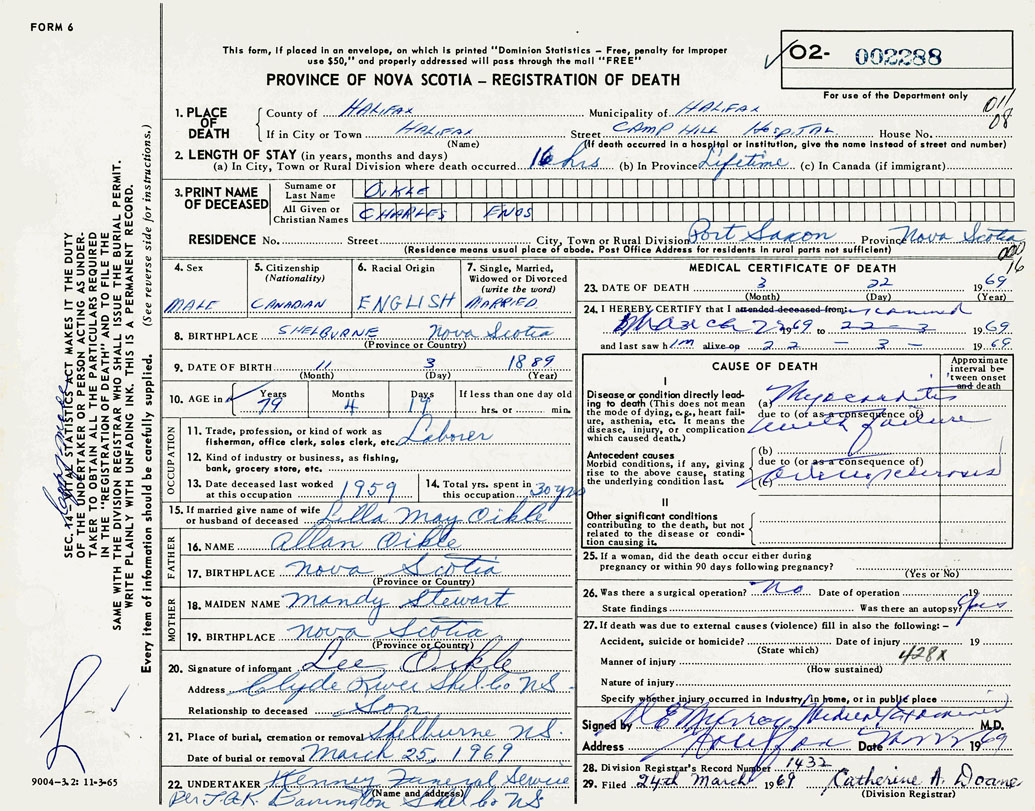 FORM 6
This form, if placed in an envelope, on which is printed "Dominion Statistics – Free, penalty for improper
use $50," and properly addressed will pass through the mail "FREE"
PROVINCE OF NOVA SCOTIA – REGISTRATION OF DEATH
O2- 002288
For use of the Department only
011
08
1. PLACE OF DEATH
County of Halifax Municipality of Halifax
If in City or Town Halifax Street Camp Hill Hospital House No.
(Name) (If death occurred in a hospital or institution, give the name instead of street and number)
2. LENGTH OF STAY (in years, months and days)
(a) In City, Town or Rural Division where death occurred 16 hrs (b) In Province Lifetime (c) In Canada (if immigrant)
3. PRINT NAME OF DECEASED
Surname or Last Name OIKLE
All Given or Christian Names CHARLES ENOS
RESIDENCE No. Street City, Town or Rural Division Port Saxon Province Nova Scotia
(Residence means usual place of abode. Post Office Address for residents in rural parts not sufficient)
000
16
4. Sex
MALE
5. Citizenship
(Nationality)
CANADIAN
6. Racial Origin
ENGLISH
7. Single, Married,
Widowed or Divorced
(write the word)
MARRIED
8. BIRTHPLACE SHELBURNE Nova Scotia
(Province or Country)
9. DATE OF BIRTH 11 3 1889
(Month) (Day) (Year)
10. AGE in Years Months Days If less than one day old
79 4 19 hrs. or min.
OCCUPATION
11. Trade, profession, or kind of work as
fisherman, office clerk, sales clerk, etc. Laborer
12. Kind of industry or business, as fishing,
bank, grocery store, etc.
13. Date deceased last worked
at this occupation 1959
14. Total yrs. spent in
this occupation 30 yrs
15. If married give name of wife
or husband of deceased Lilla May Oikle
FATHER
16. NAME Allan Oikle
17. BIRTHPLACE Nova Scotia
(Province or Country)
MOTHER
18. MAIDEN NAME Mandy Stewart
19. BIRTHPLACE Nova Scotia
(Province or Country)
20. Signature of informant Lee Oikle
Address Clyde River Shel. Co N.S.
Relationship to deceased Son
21. Place of burial, cremation or removal Shelburne N.S.
Date of burial or removal March 25, 1969
22. UNDERTAKER Kenney Funeral Service
(Name and address)
Per J.G.K. Barrington Shel Co N.S.
MEDICAL CERTIFICATE OF DEATH
23. DATE OF DEATH 3 22 1969
(Month) (Day) (Year)
24. I HEREBY CERTIFY that I attended deceased from: examined
March 22 69 to 22 – 3 – 1969
and last saw him alive on 22 – 3 – 1969
CAUSE OF DEATH
Approximate
interval be-
tween onset
and death
I
Disease or condition directly lead-
ing to death (This does not mean
the mode of dying, e.g., heart fail-
ure, asthenia, etc. It means the
disease, injury, or complication
which caused death.)
(a) Myocarditis
due to (or as a consequence of)
with failure
Antecedent causes
Morbid conditions, if any, giving
rise to the above cause, stating
the underlying condition last.
(b)
due to (or as a consequence of)
(c) Arteriosclerosis
II
Other significant conditions
contributing to the death, but not
related to the disease or condi-
tion causing it.
25. If a woman, did the death occur either during
pregnancy or within 90 days following pregnancy?
(Yes or No)
26. Was there a surgical operation? No Date of operation 19
State findings Was there an autopsy? yes
27. If death was due to external causes (violence) fill in also the following: –
Accident, suicide or homicide? Date of injury 19
(State which)
428X
Manner of injury
(How sustained)
Nature of injury
Specify whether injury occurred in industry, in home, or in public place
Signed by Murray Medical Examiner M.D.
Address Halifax Date 1969
28. Division Registrar's Record Number 1432
29. Filed 24th March 1969 Catherine A. Doane
(Division Registrar)
SEC. 14 VITAL STATISTICS ACT MAKES IT THE DUTY
OF THE UNDERTAKER OR PERSON ACTING AS UNDER-
TAKER TO OBTAIN ALL THE PARTICULARS REQUIRED
IN THE "REGISTRATION OF DEATH" AND TO FILE THE
SAME WITH THE DIVISION REGISTRAR WHO SHALL ISSUE THE BURIAL PERMIT.
WRITE PLAINLY WITH UNFADING INK. THIS IS A PERMANENT RECORD.
Every item of information should be carefully supplied. (See reverse side for instructions.)
9004–3.2: 11-3-65